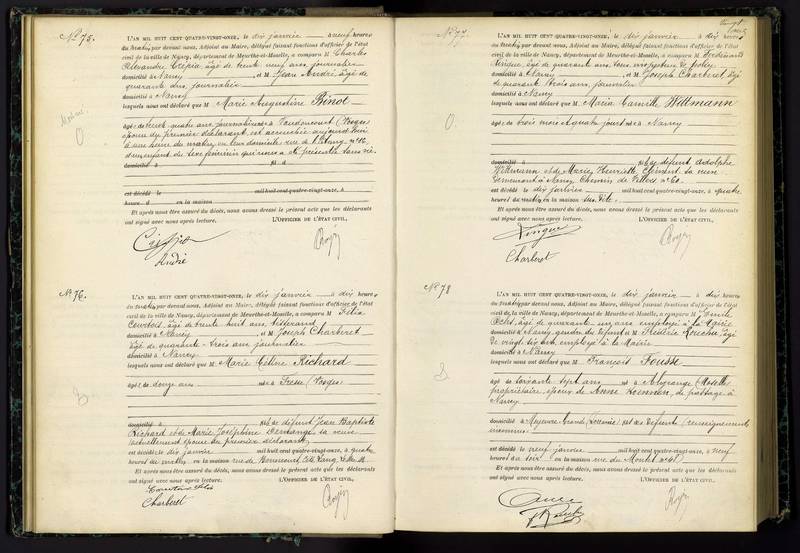 No 75.
L'AN MIL HUIT CENT QUATRE-VINGT-ONZE, le dix janvier à neuf heures
du matin, par devant nous, Adjoint au Maire, délégué faisant fonctions d'officier de l'état
civil de la ville de Nancy, département de Meurthe-et-Moselle, a comparu M Charles
Alexandre Crépin âgé de trente neuf ans, journalier
domicilié à Nancy, et M Jean André, âgé de
quarante ans, journalier
domicilié à Nancy
lesquels nous ont déclaré que M Marie Augustine Binot
âgée de trente quatre ans, journalière née à Vaudoncourt (Vosges)
épouse du premier déclarant, est accouchée aujourd'hui
à une heure du matin, en leur domicile rue de l'Etang no
d'un enfant du sexe féminin qui nous a été présenté sans vie.
domicilié à
est décédé le mil huit cent quatre-vingt-onze, à
heure d en la maison
Et après nous être assuré du décès, nous avons dressé le présent acte que les déclarants
ont signé avec nous après lecture. L'OFFICIER DE L'ÉTAT CIVIL,
André
No 76.
L'AN MIL HUIT CENT QUATRE-VINGT-ONZE, le dix janvier à dix heures
du matin, par devant nous, Adjoint au Maire, délégué faisant fonctions d'officier de l'état
civil de la ville de Nancy, département de Meurthe-et-Moselle, a comparu M Félix
Courtois, âgé de trente huit ans, tisserand
domicilié à Nancy et M Joseph Charberet
âgé de quarante-trois ans journalier
domicilié à Nancy
lesquels nous ont déclaré que M Marie Céline Richard
âgée de douze ans née à Fresse (Vosges)
domicilié à fille de défunt Jean Baptiste
Richard et de Marie Joséphine Demange sa veuve
actuellement épouse du premier déclarant
est décédée le dix janvier mil huit cent quatre-vingt-onze, à quatre
heures du matin en la maison rue de
Et après nous être assuré du décès, nous avons dressé le présent acte que les déclarants
ont signé avec nous après lecture. L'OFFICIER DE L'ÉTAT CIVIL,
Charberet
No 77.
L'AN MIL HUIT CENT QUATRE-VINGT-ONZE, le dix janvier à dix heures
du matin, par devant nous, Adjoint au Maire, délégué faisant fonctions d'officier de l'état
civil de la ville de Nancy, département de Meurthe-et-Moselle, a comparu M Ferdinand
âgé de quarante ans, sous inspecteur de police
domicilié à Nancy, et M Joseph Charberet âgé
de quarante trois ans, journalier
domicilié à Nancy
lesquels nous ont déclaré que M Maria Camille Wittmann
âgée de trois mois et quatre jours née à Nancy
domicilié à fille de défunt Adolphe
Wittmann et de Marie Henriette Clément sa veuve
demeurant à Nancy, Chemin de Villers no 60
est décédée le dix janvier mil huit cent quatre-vingt-onze, à quatre
heures du matin en la maison sus dite.
Et après nous être assuré du décès, nous avons dressé le présent acte que les déclarants
ont signé avec nous après lecture. L'OFFICIER DE L'ÉTAT CIVIL,
Charberet
No 78
L'AN MIL HUIT CENT QUATRE-VINGT-ONZE, le dix janvier à dix heures
du matin, par devant nous, Adjoint au Maire, délégué faisant fonctions d'officier de l'état
civil de la ville de Nancy, département de Meurthe-et-Moselle, a comparu M Emile
âgé de quarante un ans employé à la Mairie
domicilié à Nancy, gendre du défunt et M Frédéric Rouche âgé
de vingt six ans employé à la Mairie
domicilié à Nancy
lesquels nous ont déclaré que M François Fousse
âgé de soixante sept ans né à Algrange (Moselle)
propriétaire, époux de Anne de passage à
Nancy
domicilié à Moyeuvre Grande (Lorraine) fils des défunts (renseignements
inconnus)
est décédé le neuf janvier mil huit cent quatre-vingt-onze, à neuf
heures du soir en la maison rue du Montet no 41
Et après nous être assuré du décès, nous avons dressé le présent acte que les déclarants
ont signé avec nous après lecture. L'OFFICIER DE L'ÉTAT CIVIL,